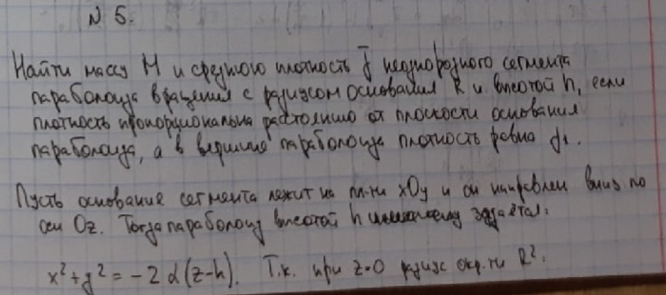 N 5.
Найти массу M и среднюю плотность γ неоднородного сегмента
параболоида вращения с радиусом основания R и высотой h, если
плотность пропорциональна расстоянию от плоскости основания
параболоида, а в вершине параболоида плотность равна γ1.
Пусть основание сегмента лежит на пл-ти xOy и он направлен вниз по
оси Oz. Тогда параболоид высотой h задаётся:
x² + y² = -2α(z-h). Т.к. при z=0 радиус окр-ти R²: